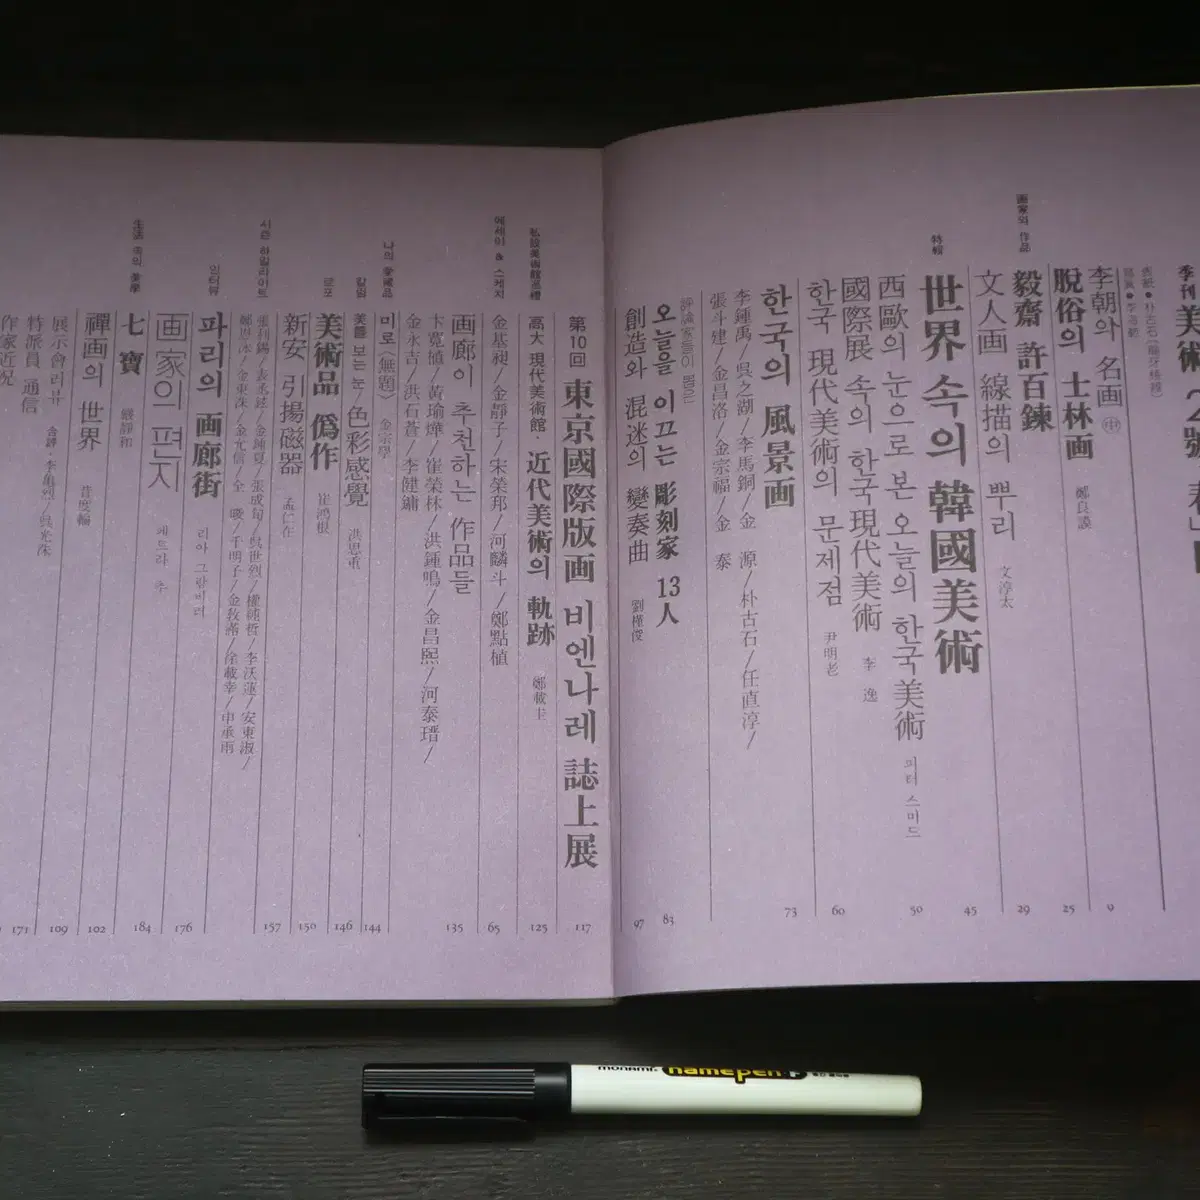 季刊
美術
表紙●
李朝와 名画 ㊥
9
脫俗의 士林画
鄭良謨
25
画家와 作品
毅齋 許百鍊
29
文人画 線描의 뿌리
文淳太
特輯
世界 속의 韓國美術
45
西歐의 눈으로 본 오늘의 한국美術
피터 스미드
50
國際展 속의 한국現代美術
李 逸
한국 現代美術의 문제점
尹明老
60
한국의 風景画
73
李鍾禹/吳之湖/李馬銅/金 源/朴古石/任直淳/
張斗建/金昌洛/金宗福/金 泰
評論家들이 뽑은
오늘을 이끄는 彫刻家 13人
83
創造와 混迷의 變奏曲
劉槿俊
97
第10回 東京國際版画 비엔나레 誌上展
117
私設美術館巡禮
高大 現代美術館· 近代美術의 軌跡
鄭載圭
125
에세이 & 스케치
金基昶/金靜子/宋榮邦/河麟斗/鄭點植
65
画廊이 추천하는 作品들
135
卞寬植/黃瑜燁/崔榮林/洪鍾鳴/金昌熙/河泰瑨/
金永吉/洪石蒼/李健鏞
나의 愛藏品
미로〈無題〉
金宗學
144
칼럼
美를 보는 눈/色彩感覺
洪思重
146
르포
美術品 僞作
崔鴻根
150
新安 引揚磁器
孟仁在
157
시즌 하일라이트
인터뷰
파리의 画廊街
176
画家의 편지
生活 속의 美學
七 寶
184
禪画의 世界
昔度輪
102
展示會 리뷰
109
特派員 通信
171
作家近況
monami
namepen